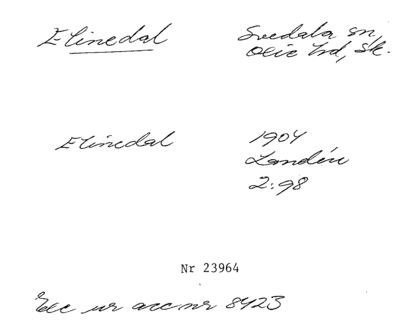 Elinedal
Svedala sn,
Oxie hd, Sk.
Elinedal
1904
Landén
2:98
Nr 23964
Exc ur acc nr 8423